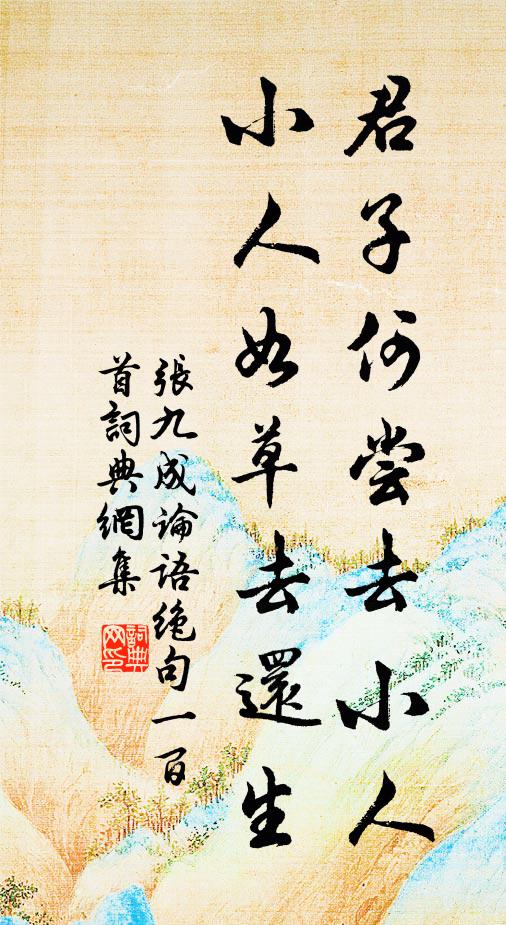 君子何尝去小人
小人如草去還生
張九成論語絶句一百
首詞典網集
詞典
网印